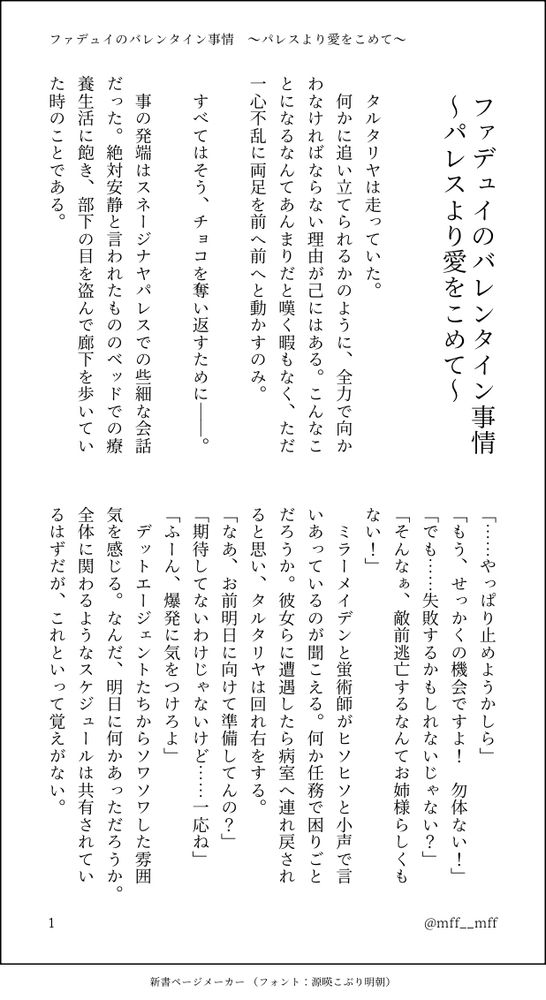 ファデュイのバレンタイン事情　～パレスより愛をこめて～
ファデュイのバレンタイン事情
～パレスより愛をこめて～
タルタリヤは走っていた。
何かに追い立てられるかのように、全力で向か
わなければならない理由が己にはある。こんなこ
とになるなんてあんまりだと嘆く暇もなく、ただ
一心不乱に両足を前へ前へと動かすのみ。
すべてはそう、チョコを奪い返すために――。
事の発端はスネージナヤパレスでの些細な会話
だった。絶対安静と言われたもののベッドでの療
養生活に飽き、部下の目を盗んで廊下を歩いてい
た時のことである。
「……やっぱり止めようかしら」
「もう、せっかくの機会ですよ！　勿体ない！」
「でも……失敗するかもしれないじゃない？」
「そんなぁ、敵前逃亡するなんてお姉様らしくも
ない！」
ミラーメイデンと蛍術師がヒソヒソと小声で言
いあっているのが聞こえる。何か任務で困りごと
だろうか。彼女らに遭遇したら病室へ連れ戻され
ると思い、タルタリヤは回れ右をする。
「なあ、お前明日に向けて準備してんの？」
「期待してないわけじゃないけど……一応ね」
「ふーん、爆発に気をつけろよ」
デットエージェントたちからソワソワした雰囲
気を感じる。なんだ、明日に何かあっただろうか。
全体に関わるようなスケジュールは共有されてい
るはずだが、これといって覚えがない。
1
@mff__mff
新書ページメーカー（フォント：源暎こぶり明朝）